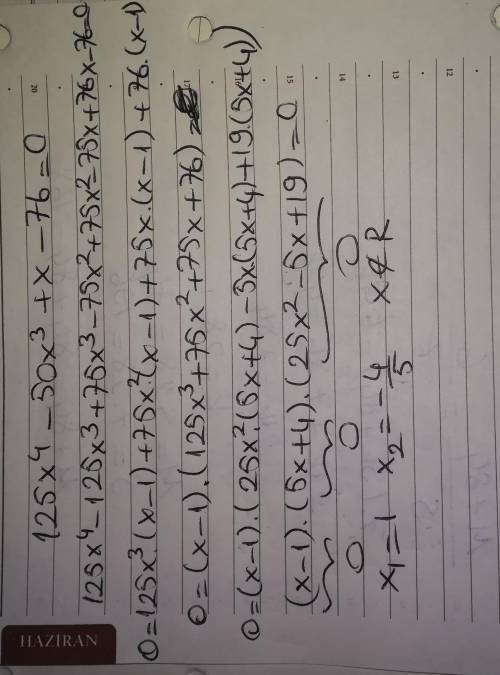 125x⁴ - 50x³ + x - 76 = 0
125x⁴ - 125x³ + 75x³ - 75x² + 75x² - 75x + 76x - 76 = 0
0 = 125x³.(x-1) + 75x²(x-1) + 75x.(x-1) + 76.(x-1)
0 = (x-1).(125x³ + 75x² + 75x + 76) =
0 = (x-1).(25x².(5x+4) - 5x(5x+4) + 19.(5x+4))
(x-1).(5x+4).(25x² - 5x + 19) = 0
0 0 0
x₁ = 1 x₂ = -4/5 x∉R
HAZİRAN
12
13
14
15
17
20